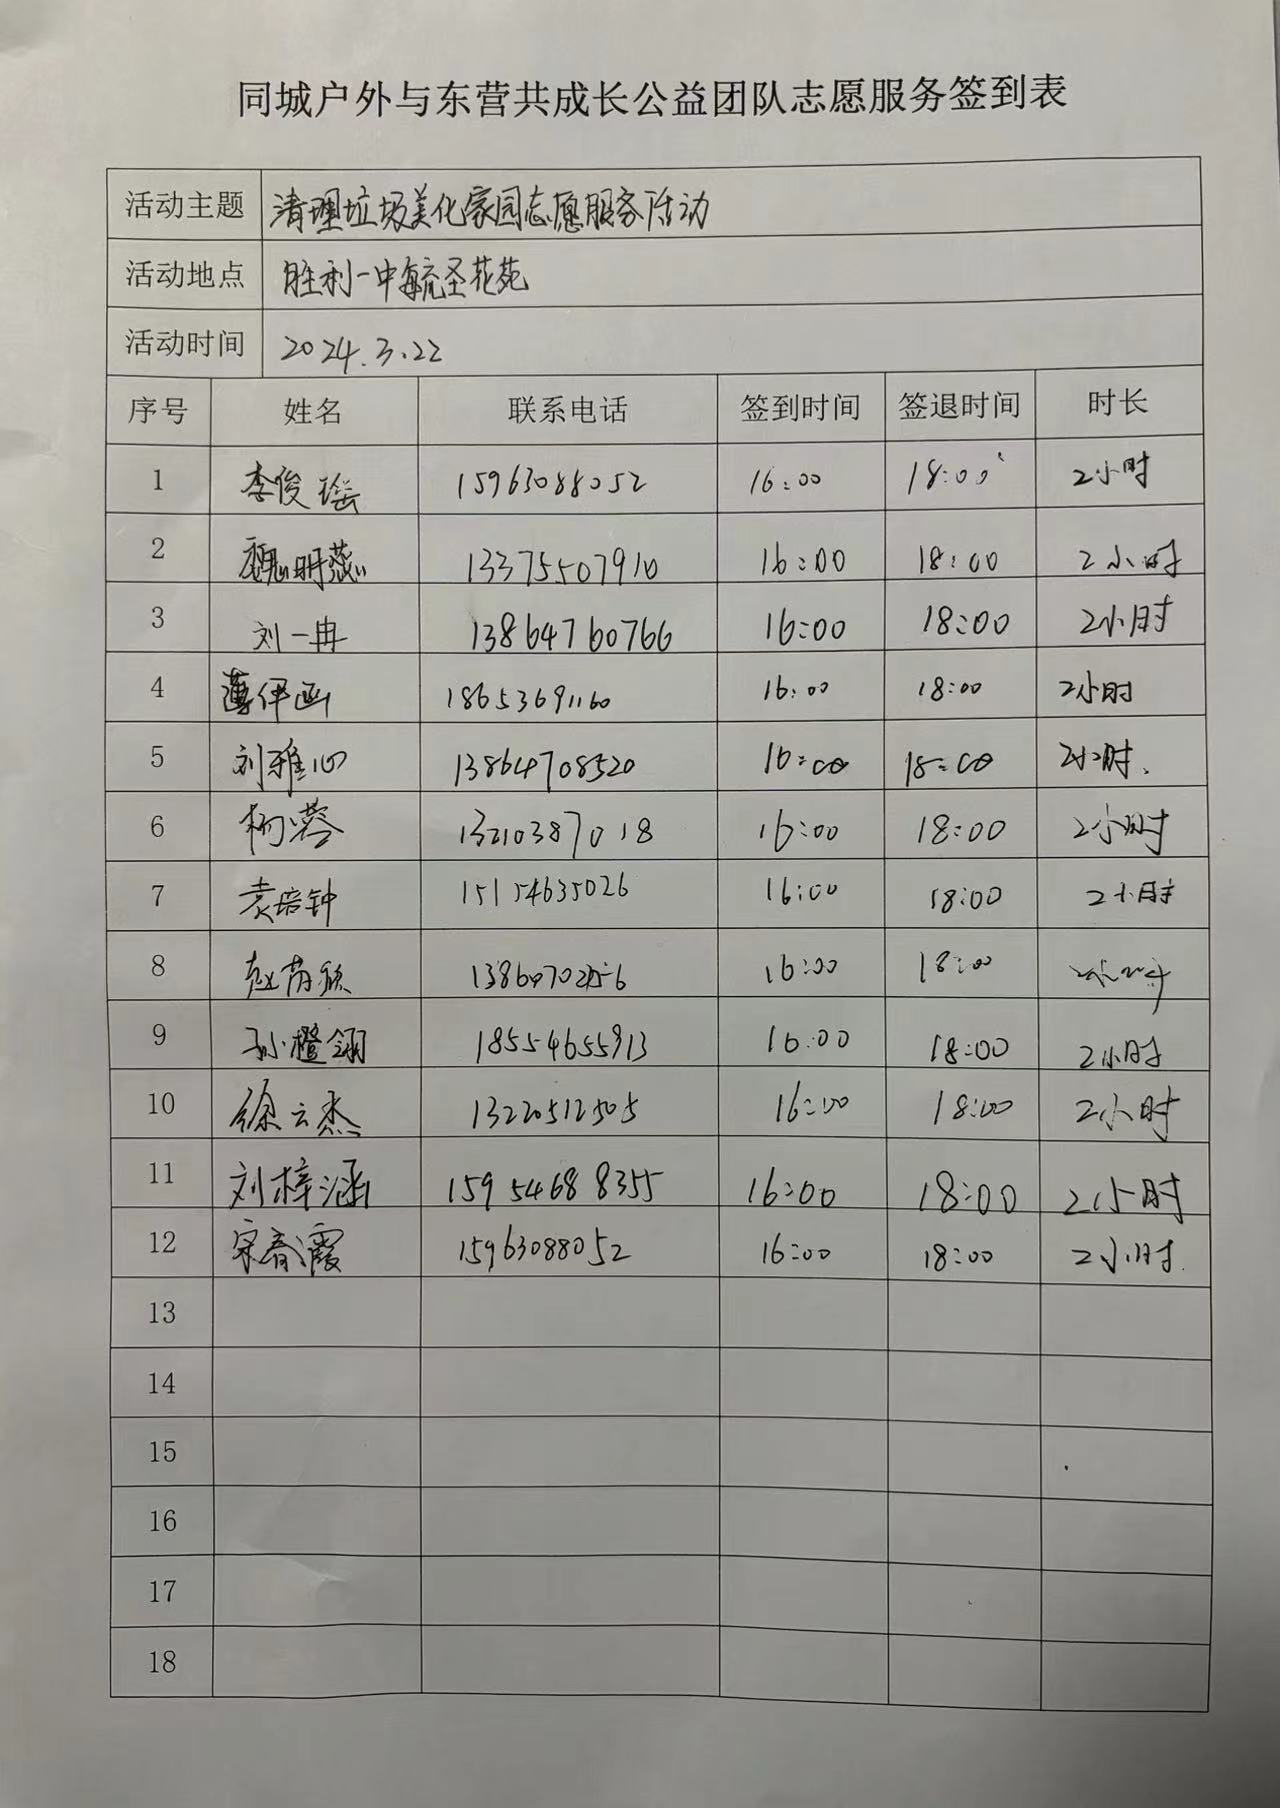 同城户外与东营共成长公益团队志愿服务签到表
活动主题 清理垃圾美化家园志愿服务活动
活动地点 胜利一中毓圣花苑
活动时间 2024.3.22
序号 姓名 联系电话 签到时间 签退时间 时长
1 李俊瑶 15963088052 16:00 18:00 2小时
2 魏明燕 13375507910 16:00 18:00 2小时
3 刘一冉 13864760766 16:00 18:00 2小时
4 薄伊画 18653691160 16:00 18:00 2小时
5 刘雅心 13864708520 16:00 18:00 2小时.
6 柯蓉 13210387018 16:00 18:00 2小时
7 袁培钟 15154635026 16:00 18:00 2小时
8 赵 16:00 18:00 2小时
9 孙橙翎 18554655913 16:00 18:00 2小时
10 徐云杰 13220512505 16:00 18:00 2小时
11 刘梓涵 15954688355 16:00 18:00 2小时
12 宋春霞 15963088052 16:00 18:00 2小时.
13
14
15
16
17
18